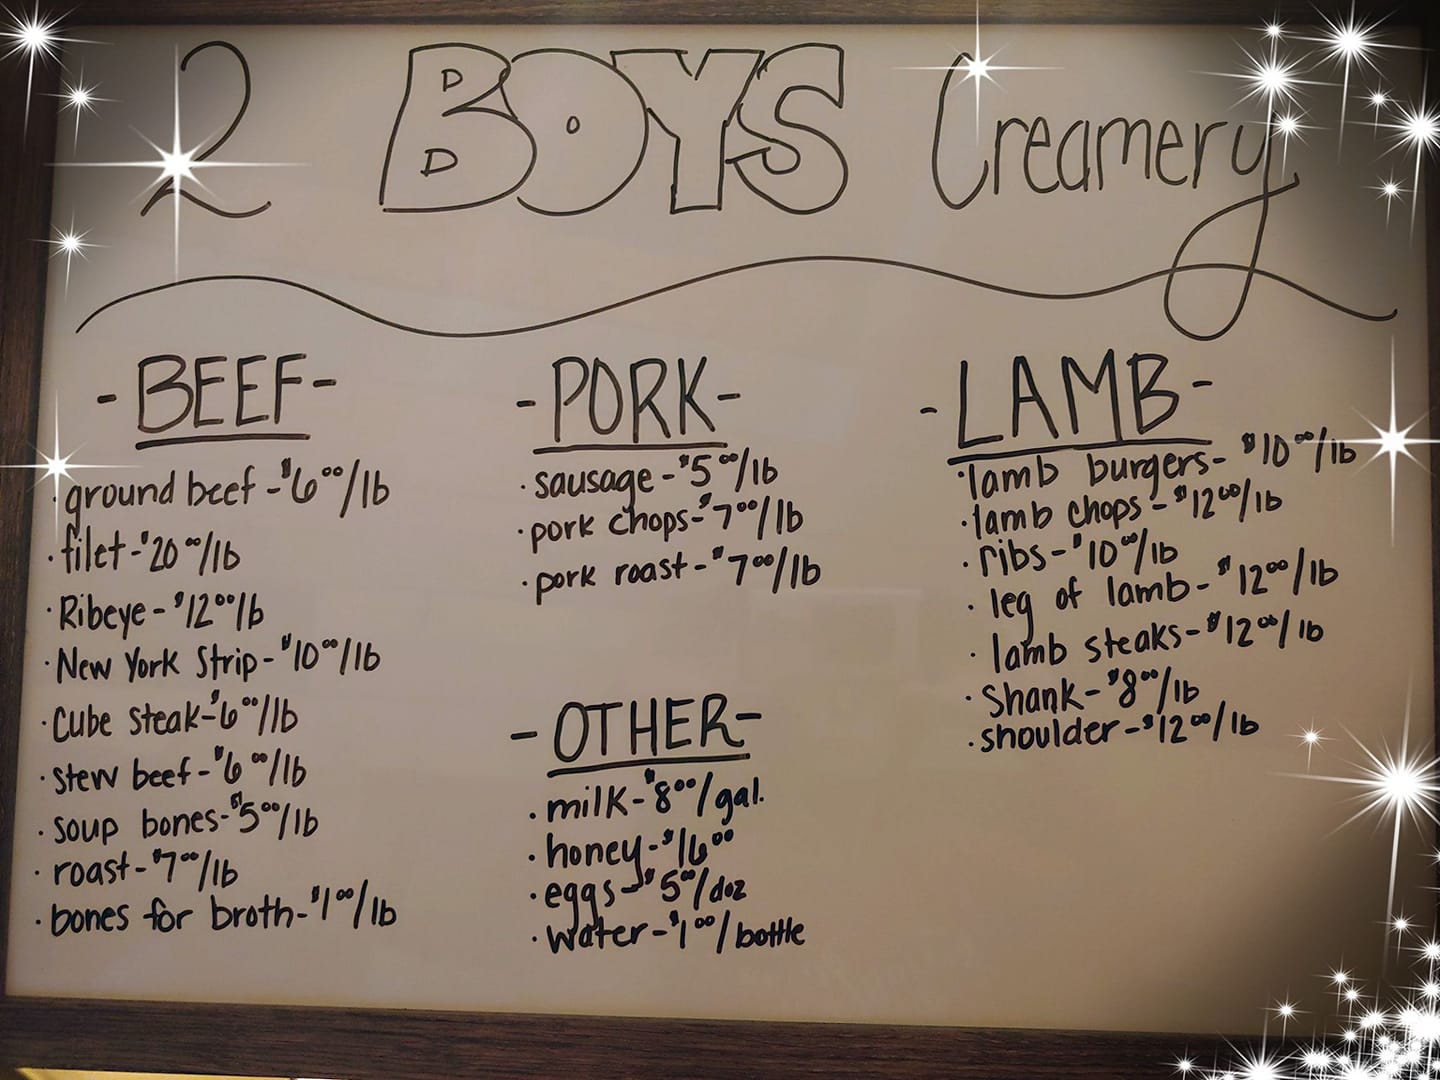 2 BOYS Creamery
-BEEF-
· ground beef - $6.00/lb
· filet - $20.00/lb
· Ribeye - $12.00/lb
· New York Strip - $10.00/lb
· Cube steak - $6.00/lb
· stew beef - $6.00/lb
· soup bones - $5.00/lb
· roast - $7.00/lb
· bones for broth - $1.00/lb
-PORK-
· sausage - $5.00/lb
· pork chops - $7.00/lb
· pork roast - $7.00/lb
-OTHER-
· milk - $8.00/gal.
· honey - $16.00
· eggs - $5.00/doz
· water - $1.00/bottle
-LAMB-
· lamb burgers - $10.00/lb
· lamb chops - $12.00/lb
· ribs - $10.00/lb
· leg of lamb - $12.00/lb
· lamb steaks - $12.00/lb
· shank - $8.00/lb
· shoulder - $12.00/lb